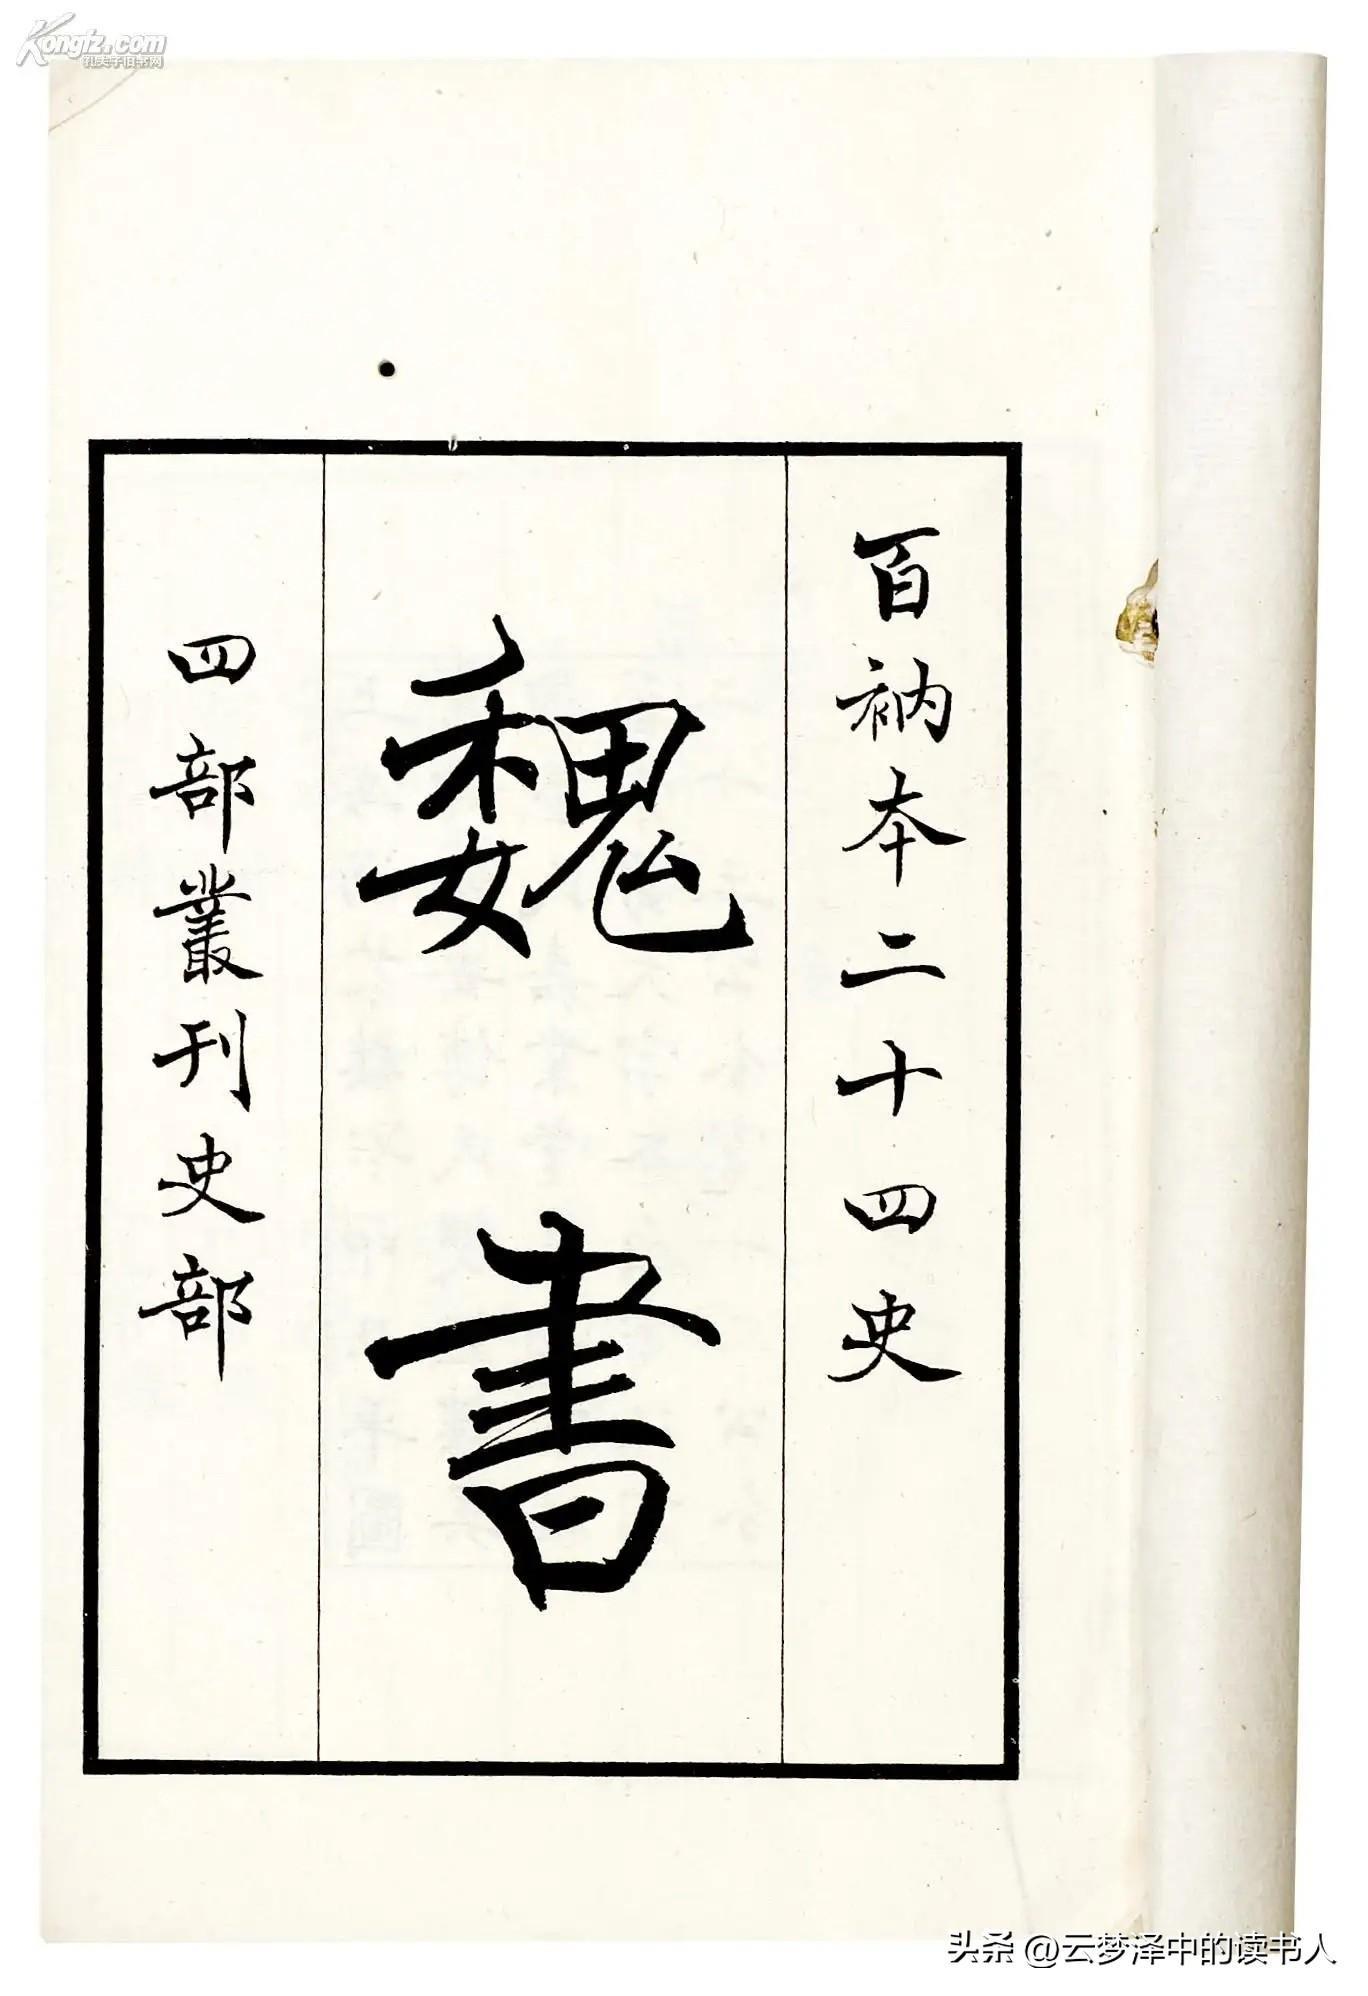 Kongfz.com
孔夫子旧书网
百衲本二十四史
魏書
四部叢刊史部
头条 @云梦泽中的读书人